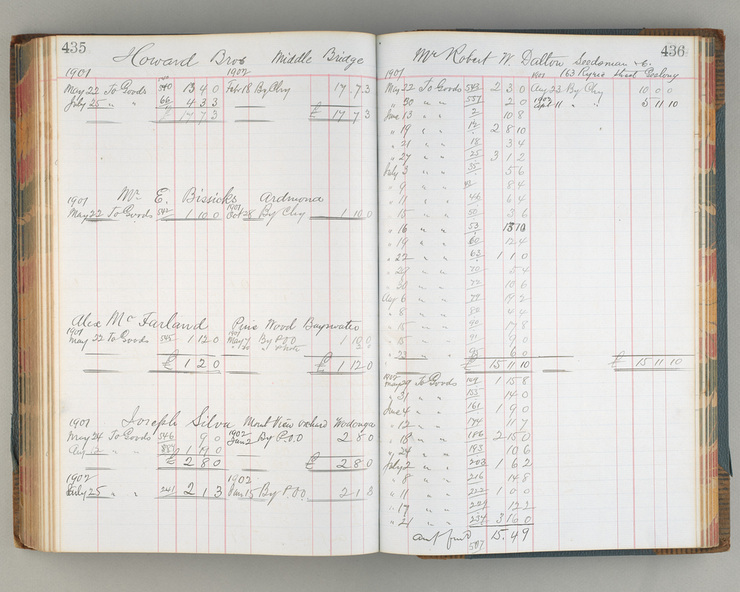 435
Howard Bros Middle Bridge
1901 1902
May 22 To Goods 540 13 4 0 Feb 18 By Chq 17 7 3
July 25 " " 66 4 3 3
£ 17 7 3 £ 17 7 3
Mr E. Bissicks Ardmona
1901 1901
May 22 To Goods 542 1 10 0 Oct 28 By Chq 1 10 0
Alex McFarland Pine Wood Bayswater
1901 1901
May 22 To Goods 545 1 12 0 By P.O.O 1 12 0
£ 1 12 0 £ 1 12 0
1901 Joseph Silva Mount View Orchard Wodonga
May 24 To Goods 546 9 0 1902 Jan 2 By P.O.O 2 8 0
Aug 1 19 0
£ 2 8 0 £ 2 8 0
1902 1902
July 25 " " 241 2 1 3 By P.O.O 2 1 3
436
Mr Robert W. Dalton Seedsman &c.
1901 1901 163 Street Geelong
May 22 To Goods 543 2 3 0 Aug 23 By Chq 10 0 0
" 30 " " 551 2 0 1902 Apl 11 " " 5 11 10
June 13 " " 2 10 8
" 19 " " 12 2 8 10
" 21 " " 18 3 4
" 27 " " 25 3 1 2
July 3 " " 35 5 6
" 9 " " 8 4
" 11 " " 46 6 4
" 15 " " 50 3 6
" 16 " " 53 13 10
" 19 " " 60 12 4
" 22 " " 63 1 1 0
" " " 70 5 4
" 30 " " 10 6
Aug 6 " " 19 2
" 8 " " 4 4
" 15 " " 17 8
" " " 9 0
" 23 " " 6 0
£ 15 11 10 £ 15 11 10
1902
May 29 To Goods 109 1 15 8
" 31 " " 155 14 0
June 4 " " 161 1 9 0
" 12 " " 174 11 7
" 18 " " 186 2 15 0
" 24 " " 195 10 6
July 2 " " 203 1 6 2
" 8 " " 216 14 8
" 11 " " 222 1 0 0
" 17 " " 229 12 2
" 21 " " 234 3 16 0
Amt fwd 507 15 4 9